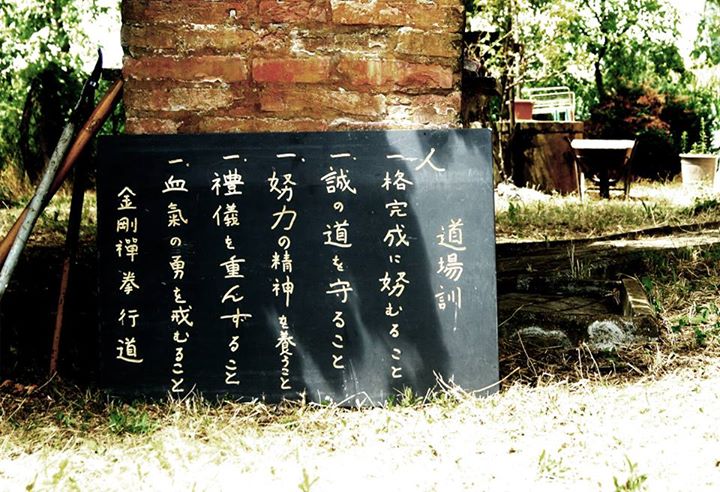 道場訓
一人格完成に努むること
一.誠の道を守ること
一.努力の精神を養うこと
一.禮儀を重んずること
一.血氣の勇を戒むること
金剛禪拳行道